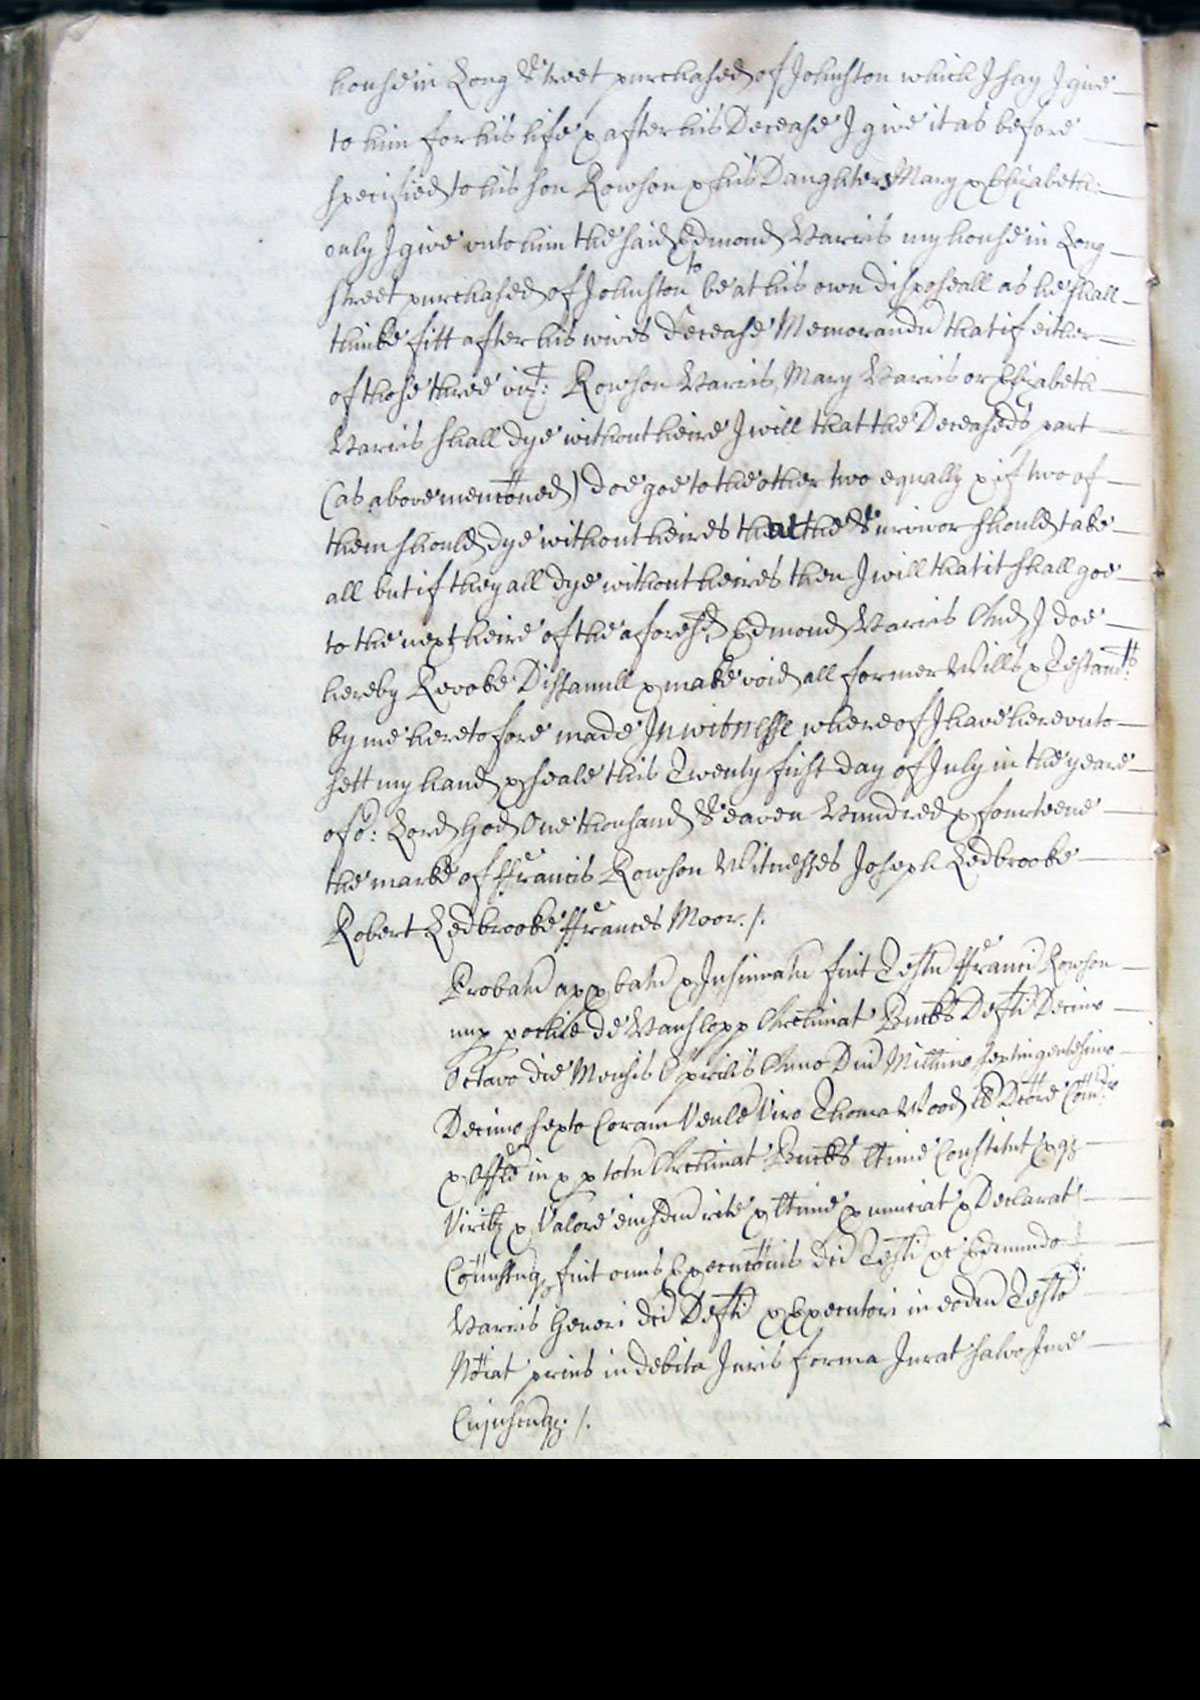 house in Long Street purchased of Johnston which I say I give
to him for his life & after his Decease I give it as before
specified to his son Rowson & his Daughters Mary & Elizabeth:
only I give unto him the said Edmond Harris my house in Long
street purchased of Johnston to be at his own disposeall as he shall
thinke fitt after his wives decease Memorandū that if either
of those three vizt: Rowson Harris, Mary Harris or Elizabeth
Harris shall dye without heire I will that the Deceaseds part
(as above menc̄oned) doe goe to the other two equally & if two of
them should dye without heires that the Survivor should take
all but if they all dye without heires then I will that it shall goe
to the next heire of the aforesd Edmond Harris And I doe
hereby Revoke Disanull & make void all former Wills & Testamts:
by me heretofore made In witnesse whereof I have hereunto
sett my hand & seale this Twenty first day of July in the yeare
of or: Lord God One thousand Seaven Hundred & fourteene
the marke of ffrancis Rowson Witnesses Joseph Ledbrooke
Robert Ledbrooke ffrances Moor. /.
Probatū appbatū & Insinuatū fuit Testū ffranci Rowson
nup pochie de Hanslopp Archinat Bucks Defti Decimo
Octavo die Mensis Aprilis Anno Dni Millimo septingentesimo
Decimo sexto Coram Venle Viro Thoma Wood Dctore
& Offic in & p totū Archinat Bucks ltime Constitut
Viribz & Valore eiusdm rite & ltime & Declarat
fuit onus Executionis dci Testi Edmundo
Harris Generi dci Defti & Executori in eodm Testo
Noiat prius in debita Juris forma Jurat salvo Jure
Cujuscuqz. /.